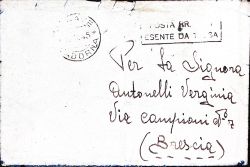 POSTA MR.
ESENTE DA TASSA
Per la Signora
Antonelli Verginia
Via Campioni Nº 7
(Brescia)